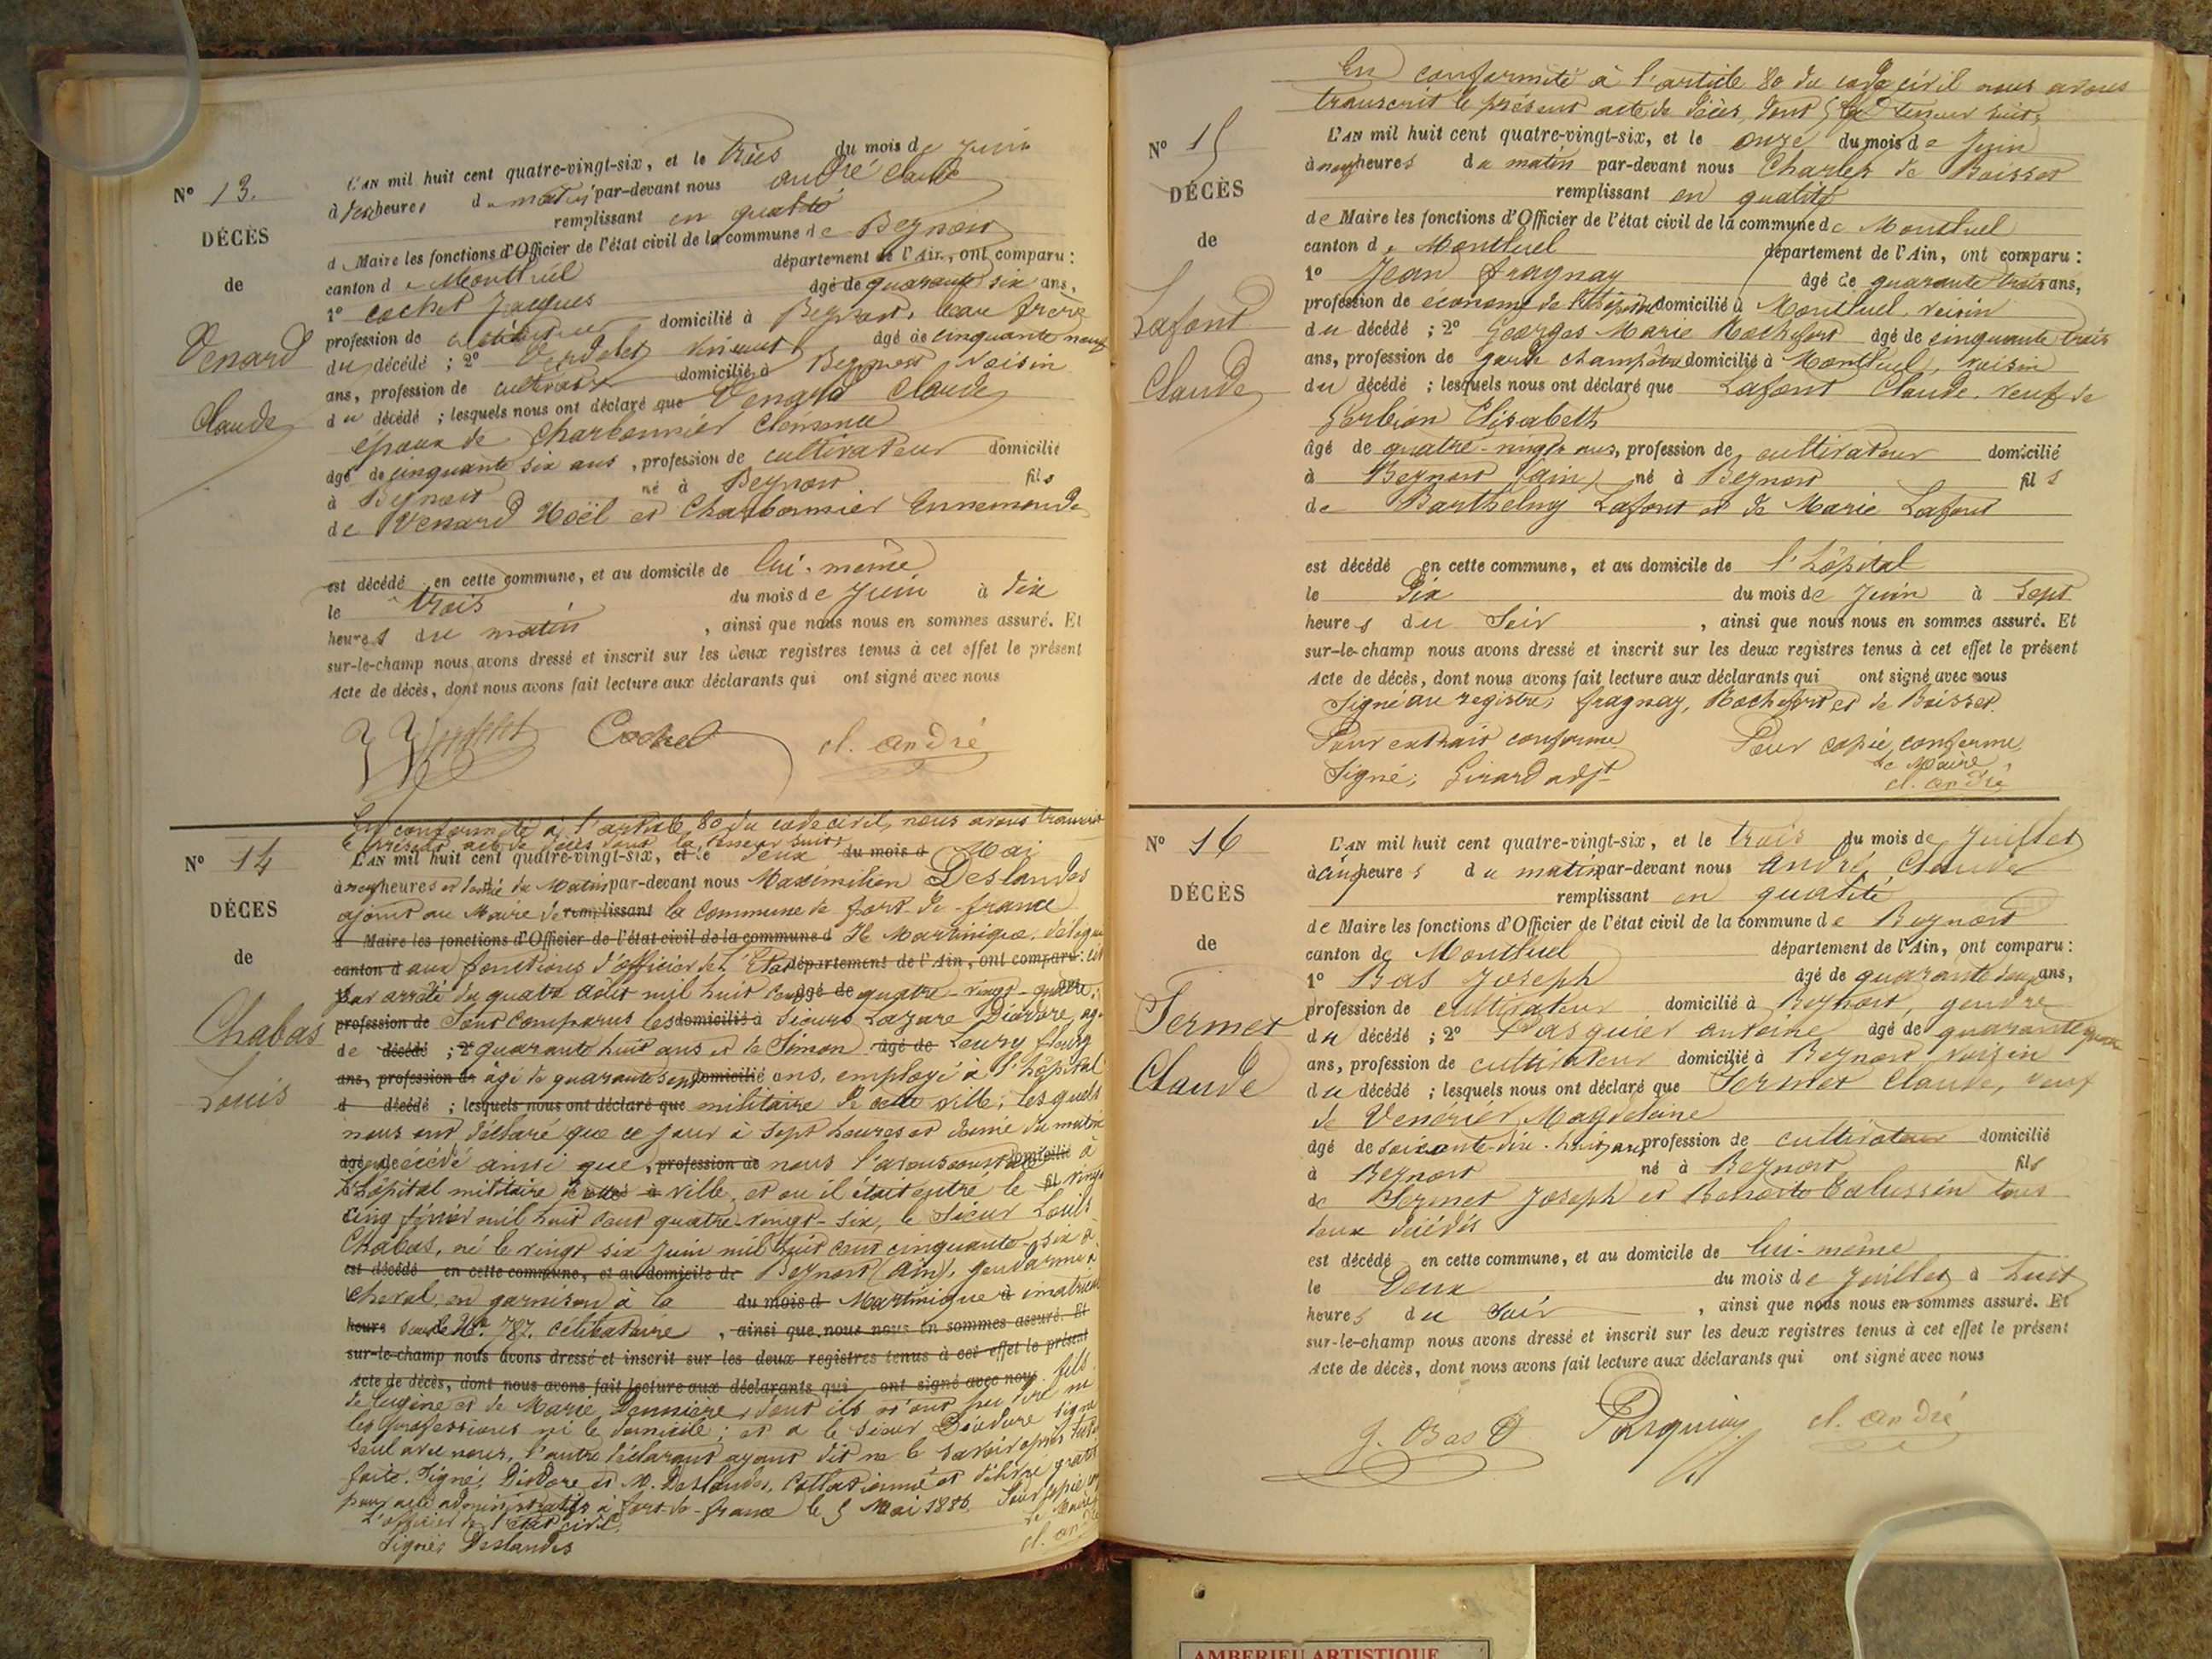 N° 13.
DÉCÈS
de
Venard
Claude
L'AN mil huit cent quatre-vingt-six, et le trois du mois de juin
à dix heures du matin par-devant nous andré Claude
remplissant en qualité
d Maire les fonctions d'Officier de l'état civil de la commune de Beynost
canton de Montluel département de l'Ain, ont comparu :
1° Cochet Jacques âgé de quarante six ans,
profession de domicilié à Beynost, beau frère
du décédé ; 2° âgé de cinquante neuf
ans, profession de cultivateur domicilié à Beynost voisin
du décédé ; lesquels nous ont déclaré que Venard Claude
époux de Charbonnier Clémence
âgé de cinquante six ans, profession de cultivateur domicilié
à Beynost né à Beynost fils
de Venard Noël et Charbonnier Ennemonde
est décédé en cette commune, et au domicile de lui-même
le trois du mois de juin à dix
heures du matin, ainsi que nous nous en sommes assuré. Et
sur-le-champ nous avons dressé et inscrit sur les deux registres tenus à cet effet le présent
Acte de décès, dont nous avons fait lecture aux déclarants qui ont signé avec nous
Cochet cl. andré
N° 14
DÉCÈS
de
Chabas
Louis
En conformité à l'article 80 du code civil, nous avons transcrit
le présent acte de décès dont la teneur suit;
L'AN mil huit cent quatre-vingt-six, et le deux du mois d Mai
à neuf heures et demie du Matin par-devant nous Maximilien Deslandes
ajoint au Maire de remplissant la commune de fort-de-france
d Maire les fonctions d'Officier de l'état civil de la commune d Martinique, délégué
canton d aux fonctions d'officier de l'Etat département de l'Ain, ont comparu :
par arrêté du quatre août mil huit cent âgé de quatre-vingt-quatre,
profession de Sont comparus les domicilié à Sieurs Lazare Diodore, agé
de décédé ; 2° quarante huit ans et de Simon âgé de Leury fleury
ans, profession de âgé de quarante sept domicilié ans, employé à l'hôpital
d décédé ; lesquels nous ont déclaré que militaire de cette ville; lesquels
nous ont déclaré que ce jour à sept heures et demie du matin
âgé de décédé ainsi que, profession de nous l'avons constaté domicilié à
l'hôpital militaire de cette à ville, et ou il était entré le fil vingt
cinq février mil huit cent quatre-vingt-six, le Sieur Louis
Chabas, né le vingt six juin mil huit cent cinquante-six à
est décédé en cette commune, et au domicile de Beynost (Ain), gendarme à
cheval, en garnison à la du mois d Martinique à
heure sous le N° 787. célibataire, ainsi que nous nous en sommes assuré. Et
sur-le-champ nous avons dressé et inscrit sur les deux registres tenus à cet effet le présent
Acte de décès, dont nous avons fait lecture aux déclarants qui ont signé avec nous fils
de Eugène et de Marie Dennière, dont ils n'ont pu dire ni
les professions ni le domicile; et a le Sieur Diodore signé
seul avec nous, l'autre déclarant ayant dit ne le savoir après lecture
faite. Signé, Diodore et M. Deslandes, Collationné et délivré gratis
pour acte administratifs à fort-de-france le 5 Mai 1886. Pour copie
L'officier de l'état civil. Le Maire
Signé: Deslandes cl. andré
En conformité à l'article 80 du code civil nous avons
transcrit le présent acte de décès, dont la teneur suit;
N° 15
DÉCÈS
de
Lafont
Claude
L'AN mil huit cent quatre-vingt-six, et le onze du mois de juin
à neuf heures du matin par-devant nous Charles de Boisset
remplissant en qualité
de Maire les fonctions d'Officier de l'état civil de la commune de Montluel
canton de Montluel département de l'Ain, ont comparu :
1° Jean fragnay âgé de quarante trois ans,
profession de économe de l'hôpital domicilié à Montluel, voisin
du décédé ; 2° Georges Marie Rochefort âgé de cinquante trois
ans, profession de garde champêtre domicilié à Montluel, voisin
du décédé ; lesquels nous ont déclaré que Lafont Claude, veuf de
Gerbion Elisabeth
âgé de quatre-vingts ans, profession de cultivateur domicilié
à Beynost (ain) né à Beynost fils
de Barthélmy Lafont et de Marie Lafont
est décédé en cette commune, et au domicile de l'hôpital
le Dix du mois de juin à sept
heures du Soir, ainsi que nous nous en sommes assuré. Et
sur-le-champ nous avons dressé et inscrit sur les deux registres tenus à cet effet le présent
Acte de décès, dont nous avons fait lecture aux déclarants qui ont signé avec nous
Signé au registre; fragnay, Rochefort et de Boisset.
Pour extrait conforme Pour copie conforme,
Le Maire,
Signé; Girard adjt cl. andré
N° 16
DÉCÈS
de
Sermet
Claude
L'AN mil huit cent quatre-vingt-six, et le trois du mois de Juillet
à cinq heures du matin par-devant nous André Claude
remplissant en qualité
de Maire les fonctions d'Officier de l'état civil de la commune de Beynost
canton de Montluel département de l'Ain, ont comparu :
1° Bas Joseph âgé de quarante deux ans,
profession de cultivateur domicilié à Beynost, gendre
du décédé ; 2° Pasquier antoine âgé de quarante
ans, profession de cultivateur domicilié à Beynost voisin
du décédé ; lesquels nous ont déclaré que Sermet Claude, veuf
de Venérier Magdelaine
âgé de soixante-dix-huit ans, profession de cultivateur domicilié
à Beynost né à Beynost fils
de Sermet Joseph et Benoite Calussin tous
deux décédés
est décédé en cette commune, et au domicile de lui-même
le Deux du mois de Juillet à huit
heures du Soir, ainsi que nous nous en sommes assuré. Et
sur-le-champ nous avons dressé et inscrit sur les deux registres tenus à cet effet le présent
Acte de décès, dont nous avons fait lecture aux déclarants qui ont signé avec nous
J. Bas Pasquier cl. andré
AMBERIEU ARTISTIQUE